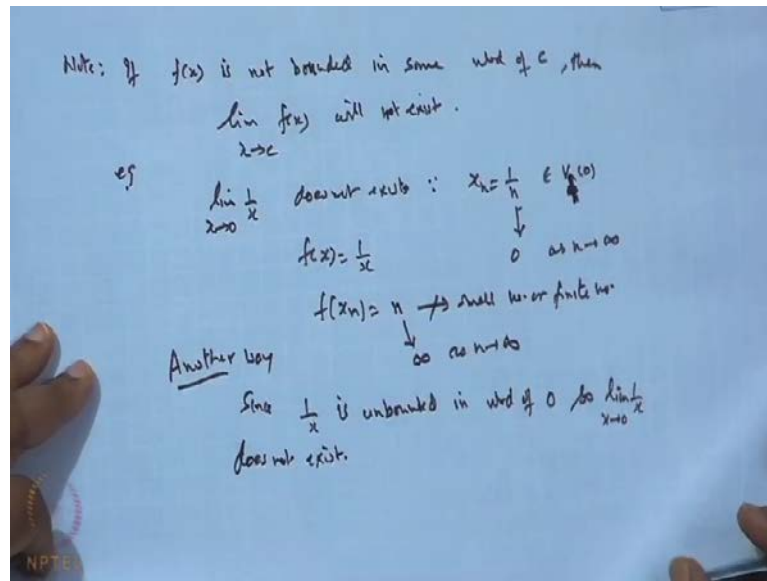 Note: If f(x) is not bounded in some nbd of c, then
lim f(x) will not exist.
x→c
eg lim 1/x does not exists ∵ xn = 1/n ∈ V (0)
x→0
↓
f(x) = 1/x 0 as n→∞
f(xn) = n ↛ small no. or finite no.
↓
Another way ∞ as n→∞
Since 1/x is unbounded in nbd of 0 so lim 1/x
x→0
does not exist.
NPTEL